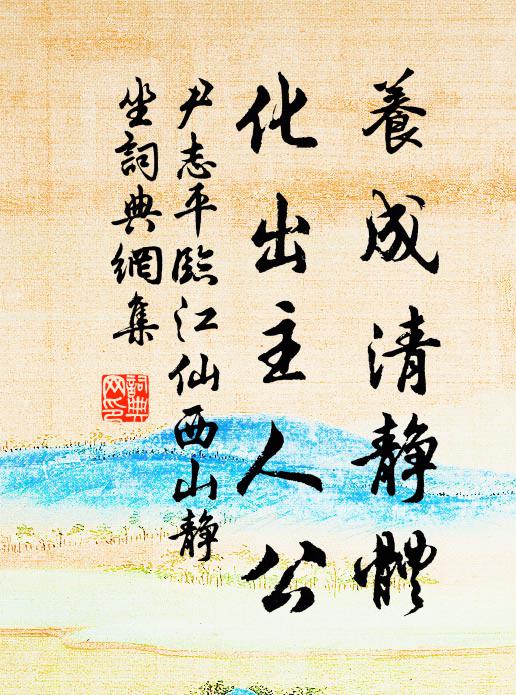 養成清静體
化出主人公
尹志平臨江仙西山静
坐詞典網集
詞典
网印